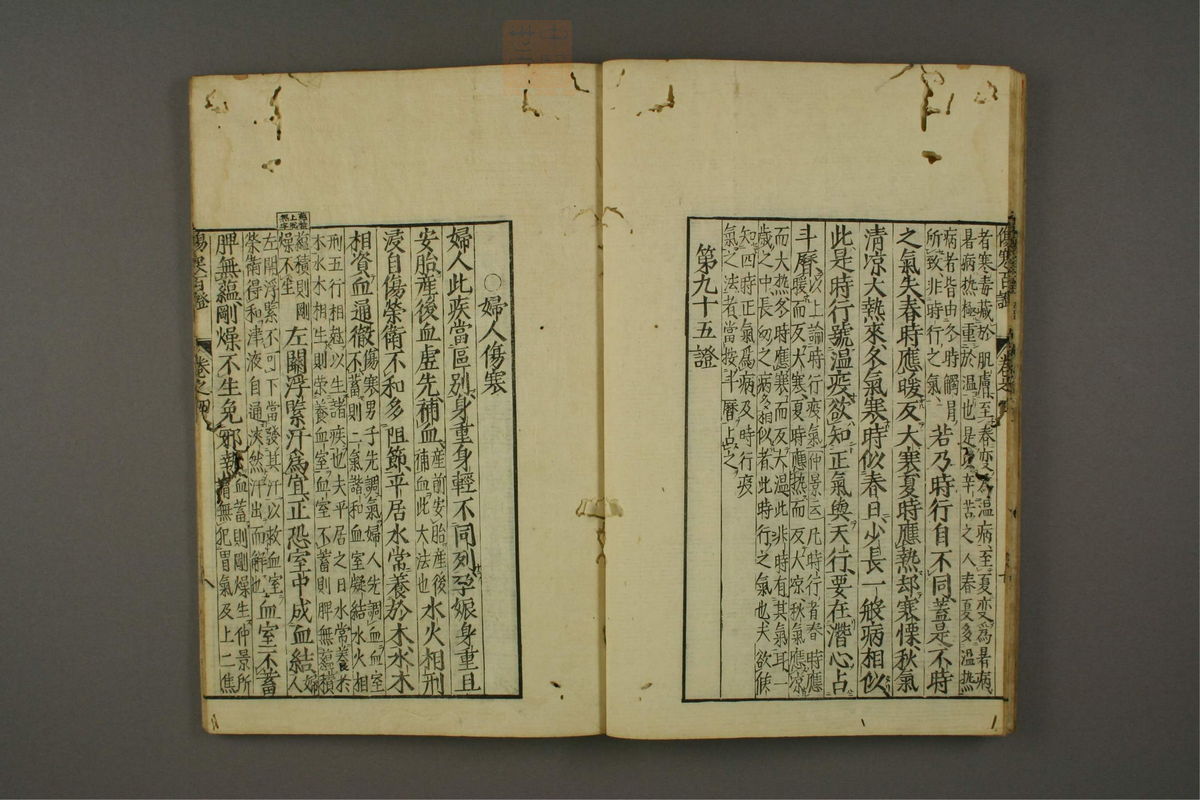 傷寒百證 卷之四 十
者寒毒藏於肌膚至春變爲溫病至夏變爲暑病
暑病熱極重於溫也是以辛苦之人春夏多溫熱
病者皆由冬時觸冒
所致非時行之氣
若乃時行自不同蓋是不時
之氣失春時應暖反大寒夏時應熱却寒慄秋氣
清凉大熱來冬氣寒時似春日少長一般病相似
此是時行號溫疫欲知正氣與天行要在潛心占
斗曆
以上論時行疫氣仲景云凡時行者春時應
暖而反大寒夏時應熱而反大凉秋氣應凉
而大熱冬時應寒而反大溫此非時有其氣耳一
歲之中長幼之病多相似者此時行之氣也夫欲候
知四時正氣爲病及時行疫
氣之法者當按斗曆占之
第九十五證
○婦人傷寒
婦人此疾當區別身重身輕不同列孕娠身重且
安胎產後血虛先補血
產前安胎產後
補血此大法也
水火相刑
浸自傷榮衛不和多阻節平居水當養於木水木
相資血通徹
傷寒男子先調氣婦人先調血血室
不蓄則二氣諧和血室凝結水火相
刑五行相尅以生諸疾也夫平居之日水常養於
木水木相生則榮養血室血室不蓄則脾無蘊積脾無
蘊積則剛
燥不生
左關浮緊汗爲宜正恐室中成血結
婦人
左關浮緊不可下當發其汗以救血室
榮衛得和津液自通浹然汗出而解也
血室不蓄
脾無蘊剛燥不生免邪
血蓄則剛燥生仲景所
謂無犯胃氣及上二焦
傷寒百證 卷之四 八